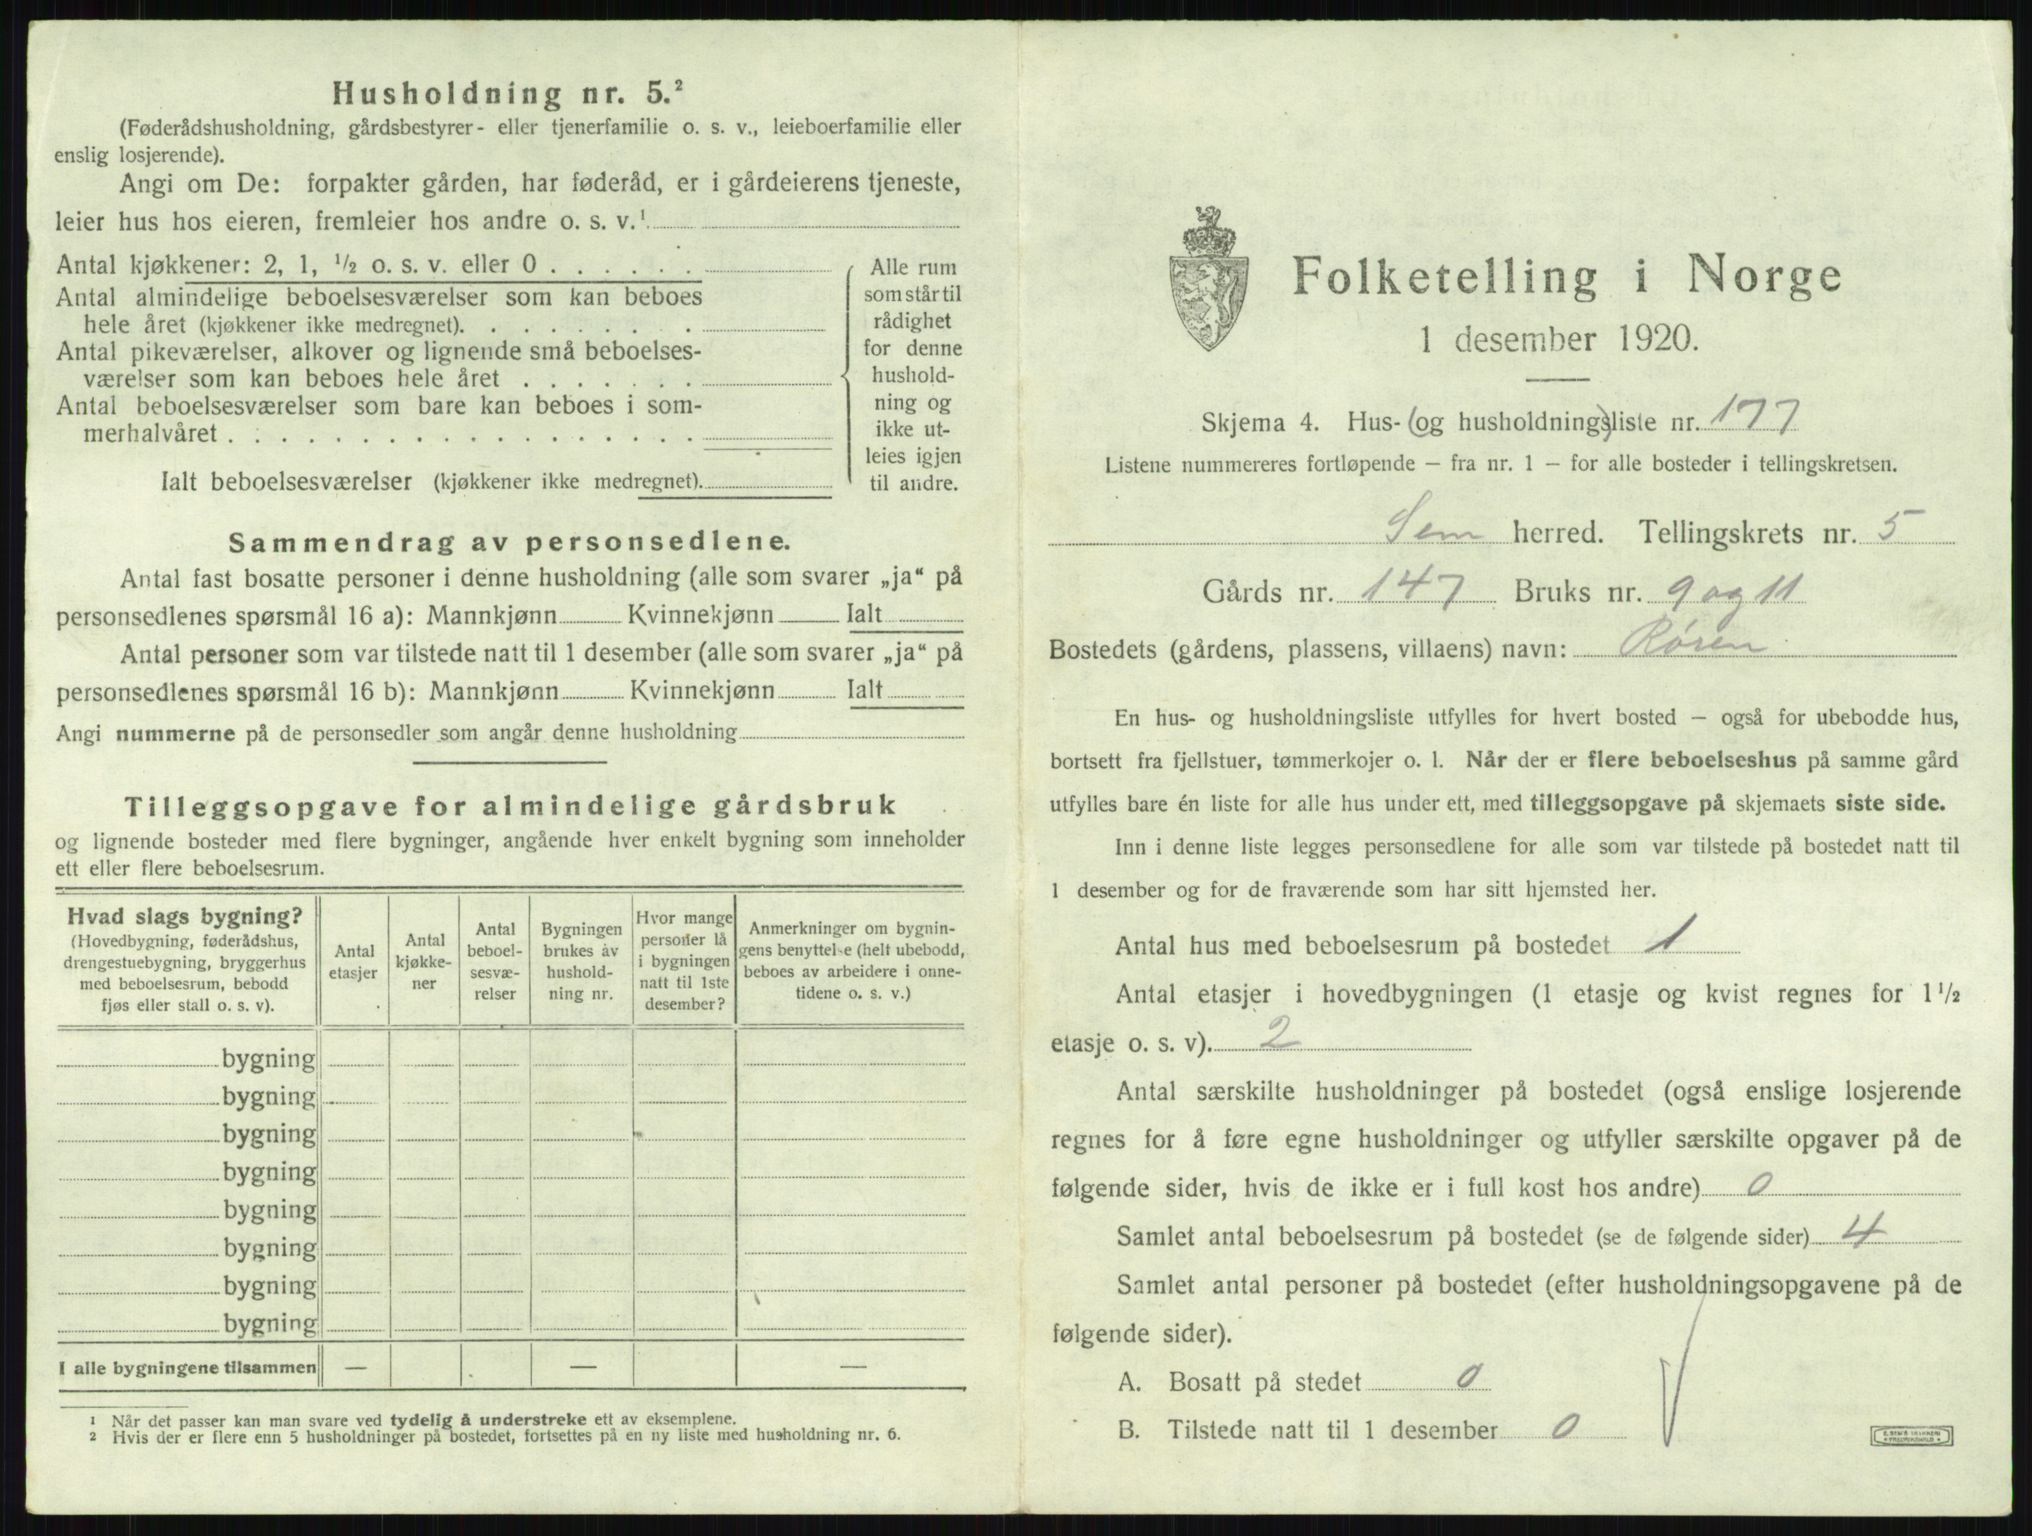 Husholdning nr. 5.²
(Føderådshusholdning, gårdsbestyrer- eller tjenerfamilie o. s. v., leieboerfamilie eller
enslig losjerende).
Angi om De: forpakter gården, har føderåd, er i gårdeierens tjeneste,
leier hus hos eieren, fremleier hos andre o. s. v.¹
Antal kjøkkener: 2, 1, ½ o. s. v. eller 0 . . . . . .
Antal almindelige beboelsesværelser som kan beboes
hele året (kjøkkener ikke medregnet). . . . . . . . .
Antal pikeværelser, alkover og lignende små beboelses-
værelser som kan beboes hele året . . . . . . .
Antal beboelsesværelser som bare kan beboes i som-
merhalvåret . . . . . . . . . . . . . . . . . .
Ialt beboelsesværelser (kjøkkener ikke medregnet).
Alle rum
som står til
rådighet
for denne
hushold-
ning og
ikke ut-
leies igjen
til andre.
Sammendrag av personsedlene.
Antal fast bosatte personer i denne husholdning (alle som svarer „ja“ på
personsedlenes spørsmål 16 a): Mannkjønn Kvinnekjønn Ialt
Antal personer som var tilstede natt til 1 desember (alle som svarer „ja“ på
personsedlenes spørsmål 16 b): Mannkjønn Kvinnekjønn Ialt
Angi nummerne på de personsedler som angår denne husholdning
Tilleggsopgave for almindelige gårdsbruk
og lignende bosteder med flere bygninger, angående hver enkelt bygning som inneholder
ett eller flere beboelsesrum.
Hvad slags bygning?
(Hovedbygning, føderådshus,
drengestuebygning, bryggerhus
med beboelsesrum, bebodd
fjøs eller stall o. s. v).
Antal
etasjer
Antal
kjøkke-
ner
Antal
beboel-
sesvæ-
relser
Bygningen
brukes av
hushold-
ning nr.
Hvor mange
personer lå
i bygningen
natt til 1ste
desember?
Anmerkninger om bygnin-
gens benyttelse (helt ubebodd,
beboes av arbeidere i onne-
tidene o. s. v.)
bygning
bygning
bygning
bygning
bygning
bygning
bygning
bygning
I alle bygningene tilsammen — — —
¹ Når det passer kan man svare ved tydelig å understreke ett av eksemplene.
² Hvis der er flere enn 5 husholdninger på bostedet, fortsettes på en ny liste med husholdning nr. 6.
Folketelling i Norge
1 desember 1920.
Skjema 4. Hus- (og husholdnings)liste nr. 177
Listene nummereres fortløpende – fra nr. 1 – for alle bosteder i tellingskretsen.
Sem herred. Tellingskrets nr. 5
Gårds nr. 147 Bruks nr. 9 og 11
Bostedets (gårdens, plassens, villaens) navn: Røren
En hus- og husholdningsliste utfylles for hvert bosted – også for ubebodde hus,
bortsett fra fjellstuer, tømmerkojer o. l. Når der er flere beboelseshus på samme gård
utfylles bare én liste for alle hus under ett, med tilleggsopgave på skjemaets siste side.
Inn i denne liste legges personsedlene for alle som var tilstede på bostedet natt til
1 desember og for de fraværende som har sitt hjemsted her.
Antal hus med beboelsesrum på bostedet 1
Antal etasjer i hovedbygningen (1 etasje og kvist regnes for 1½
etasje o. s. v). 2
Antal særskilte husholdninger på bostedet (også enslige losjerende
regnes for å føre egne husholdninger og utfyller særskilte opgaver på de
følgende sider, hvis de ikke er i full kost hos andre) 0
Samlet antal beboelsesrum på bostedet (se de følgende sider) 4
Samlet antal personer på bostedet (efter husholdningsopgavene på de
følgende sider).
A. Bosatt på stedet 0
B. Tilstede natt til 1 desember 0